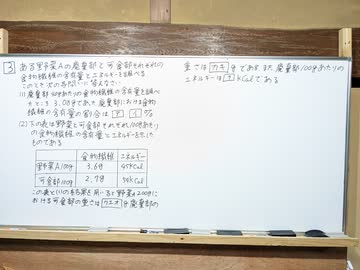 ③ ある野菜Aの廃棄部と可食部それぞれの
食物繊維の含有量とエネルギーを調べる
このとき次の各問いに答えなさい
(1) 廃棄部40gあたりの食物繊維の含有量を調べ
たとき 3.08gであった 廃棄部における食物
繊維の含有量の割合は ア . イ %
(2) 下の表は野菜Aと可食部それぞれ100gあたり
の食物繊維の含有量とエネルギーを示した
ものである
食物繊維 エネルギー
野菜A100g 3.6g 45kcal
可食部100g 2.7g 54kcal
この表と(1)の結果を用いると野菜A200gに
おける可食部の重さは ウエオ g 廃棄部の
重さは カキ gである また 廃棄部100gあたりの
エネルギーは ク kcalである